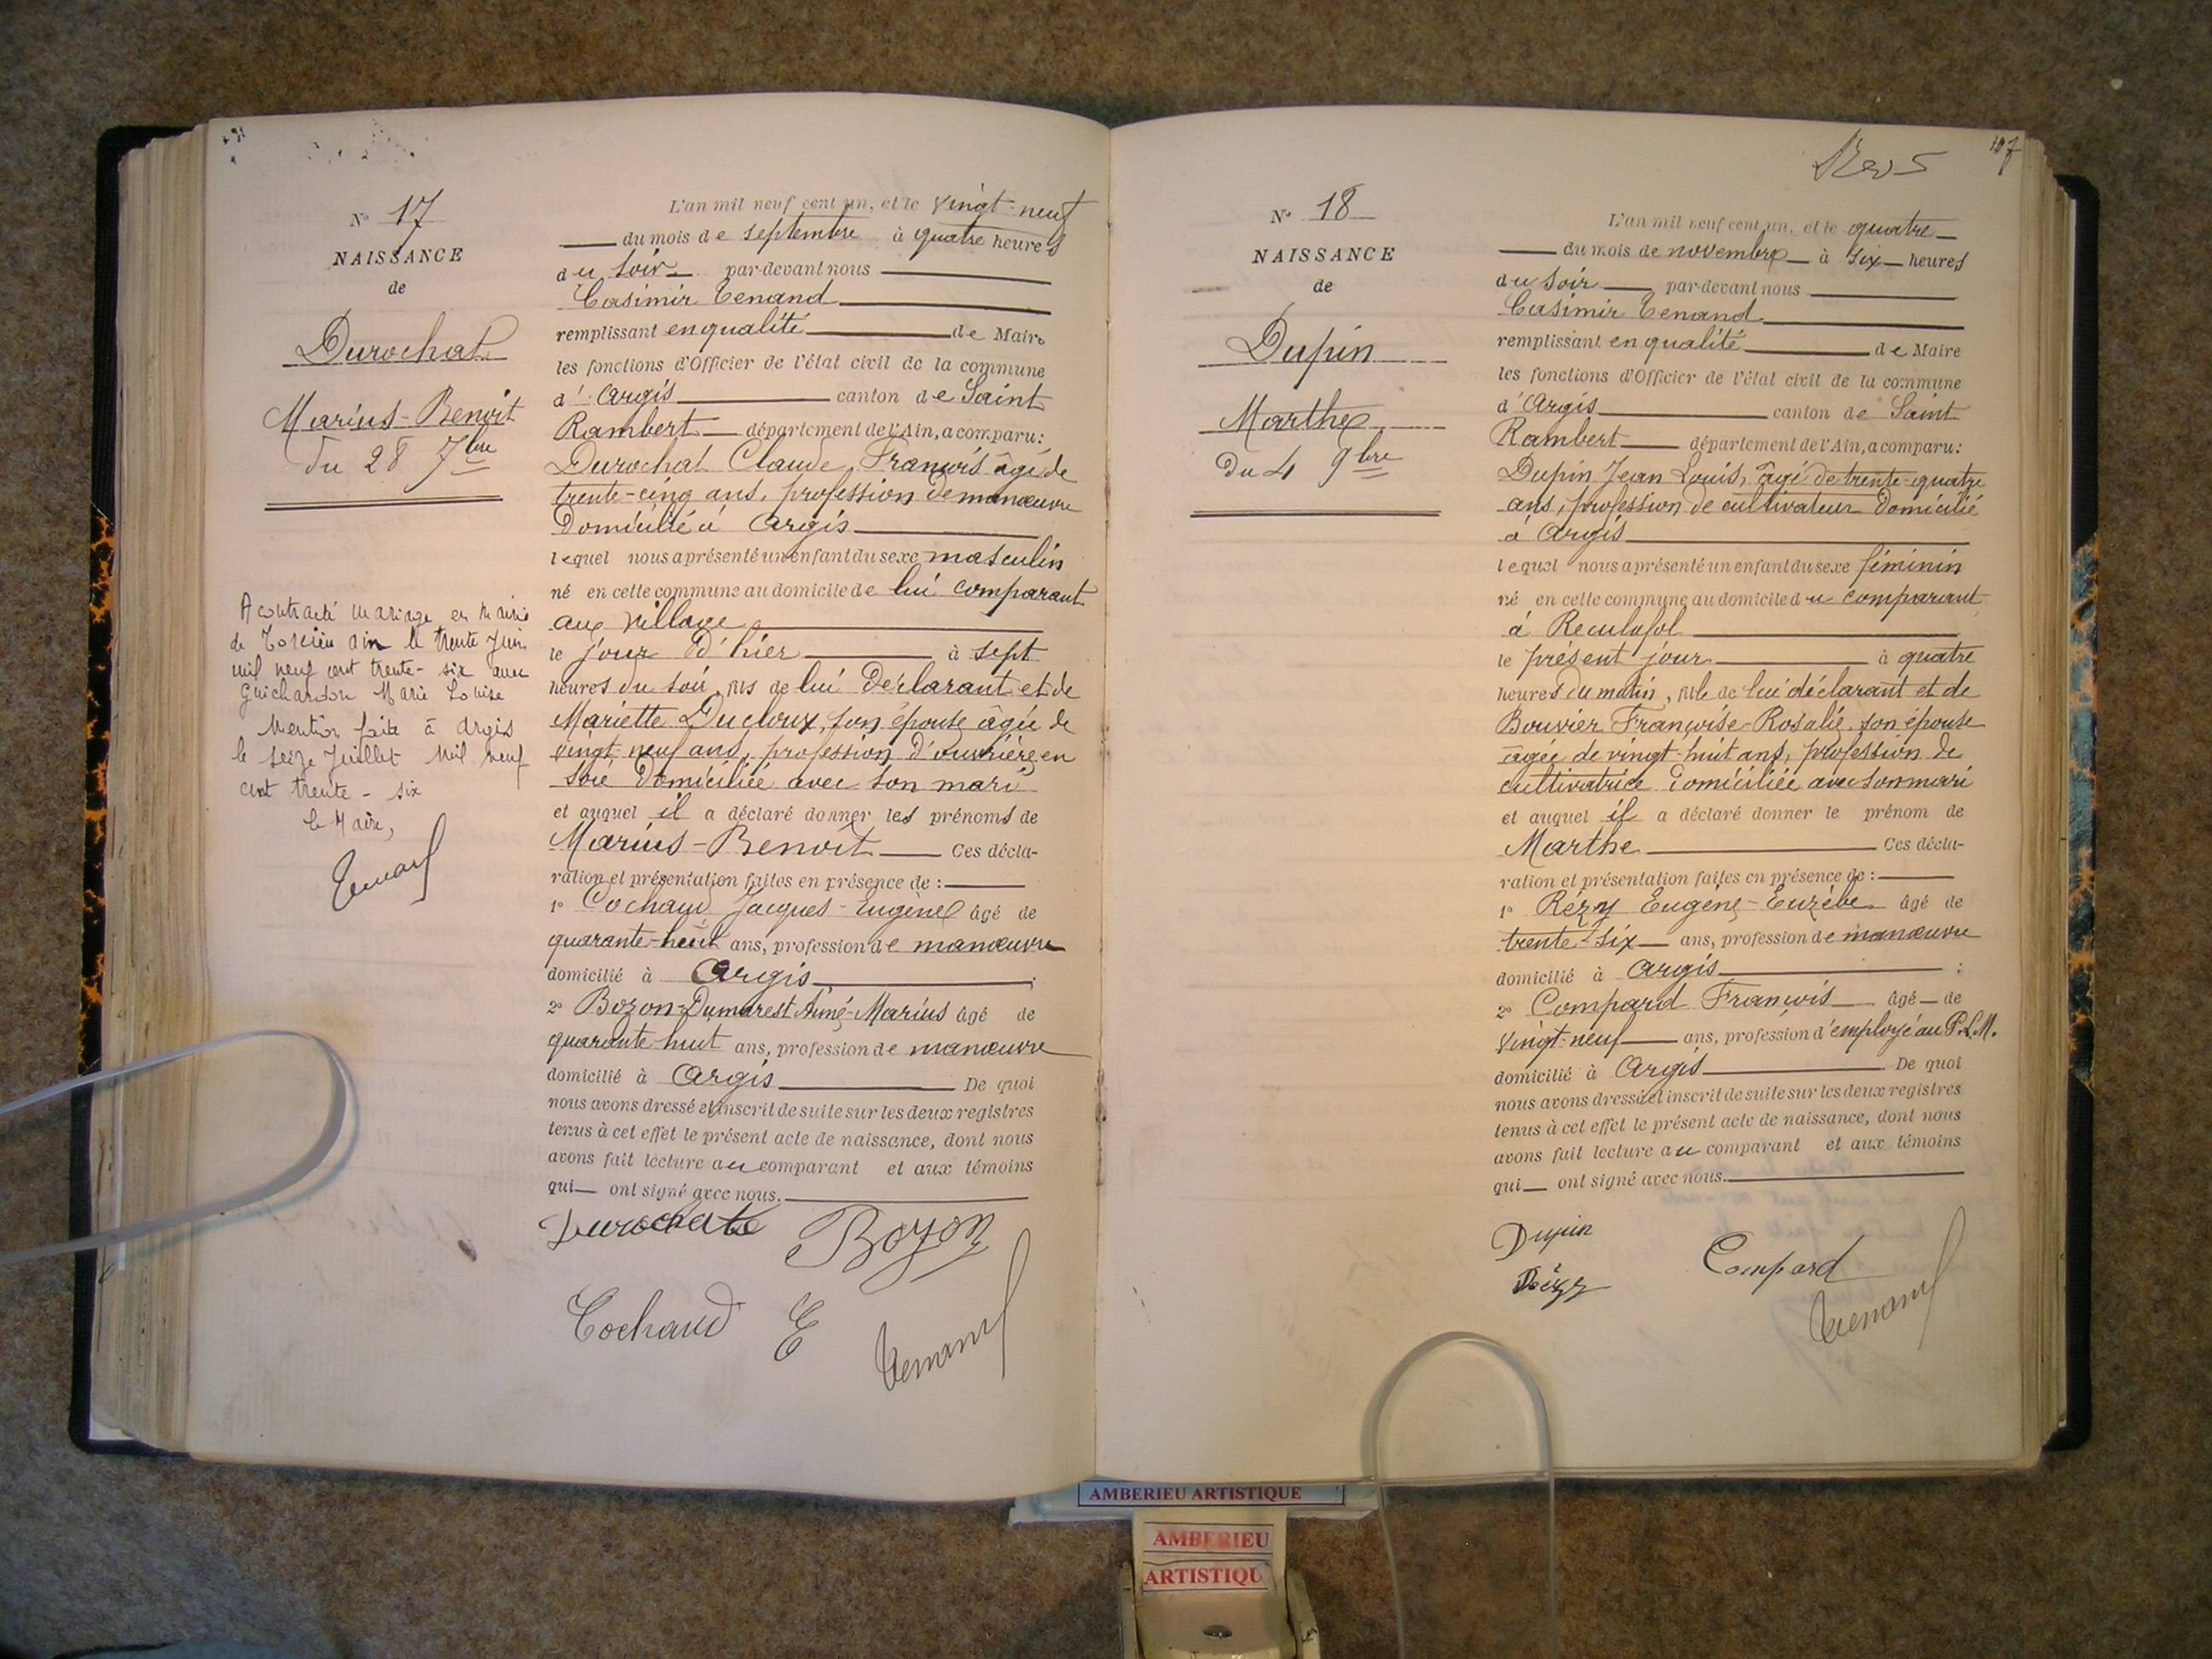 N° 17
NAISSANCE
de
Durochat
Marius-Benoit
du 28 7bre
A contracté mariage en Mairie
de Torcieu ain le trente Juin
mil neuf cent trente-six avec
Guichardon Marie Louise
Mention faite à Argis
le seize Juillet Mil neuf
cent trente-six
le Maire,
Tenand
L'an mil neuf cent un, et le vingt-neuf
du mois de septembre à quatre heures
du soir par-devant nous
Casimir Tenand
remplissant en qualité de Maire
les fonctions d'Officier de l'état civil de la commune
d'Argis canton de Saint
Rambert département de l'Ain, a comparu:
Durochat Claude, François âgé de
trente-cinq ans, profession de manœuvre
Domicilié à Argis
lequel nous a présenté un enfant du sexe masculin
né en cette commune au domicile de lui comparant
au village
le jour d'hier à sept
heures du soir, fils de lui déclarant et de
Mariette Ducloux, son épouse âgée de
vingt-neuf ans, profession d'ouvrière en
soie Domiciliée avec son mari
et auquel il a déclaré donner les prénoms de
Marius-Benoit Ces décla-
ration et présentation faites en présence de :
1° Cochaud Jacques-Eugène âgé de
quarante-huit ans, profession de manœuvre
domicilié à Argis ;
2° Bozon-Dumarest Aimé-Marius âgé de
quarante huit ans, profession de manœuvre
domicilié à Argis De quoi
nous avons dressé et inscrit de suite sur les deux registres
tenus à cet effet le présent acte de naissance, dont nous
avons fait lecture au comparant et aux témoins
qui ont signé avec nous.
Durochat Bozon
Cochaud E Tenand
107
N° 18
NAISSANCE
de
Dupin
Marthe
Du 4 9bre
L'an mil neuf cent un, et le quatre
du mois de novembre à six heures
du soir par-devant nous
Casimir Tenand
remplissant en qualité de Maire
les fonctions d'Officier de l'état civil de la commune
d'Argis canton de Saint
Rambert département de l'Ain, a comparu:
Dupin Jean Louis, âgé de trente-quatre
ans, profession de cultivateur Domicilié
à Argis
lequel nous a présenté un enfant du sexe féminin
né en cette commune au domicile du comparant
à Reculafol
le présent jour à quatre
heures du matin, fille de lui déclarant et de
Bouvier Françoise-Rosalie son épouse
âgée de vingt-huit ans, profession de
cultivatrice Domiciliée avec son mari
et auquel il a déclaré donner le prénom de
Marthe Ces décla-
ration et présentation faites en présence de :
1° Rézy Eugène-Euzèbe âgé de
trente-six ans, profession de manœuvre
domicilié à Argis ;
2° Compard François âgé de
vingt-neuf ans, profession d'employé au P.L.M.
domicilié à Argis De quoi
nous avons dressé et inscrit de suite sur les deux registres
tenus à cet effet le présent acte de naissance, dont nous
avons fait lecture au comparant et aux témoins
qui ont signé avec nous.
Dupin
Rézy Compard
Tenand
AMBERIEU ARTISTIQUE
AMBERIEU
ARTISTIQU